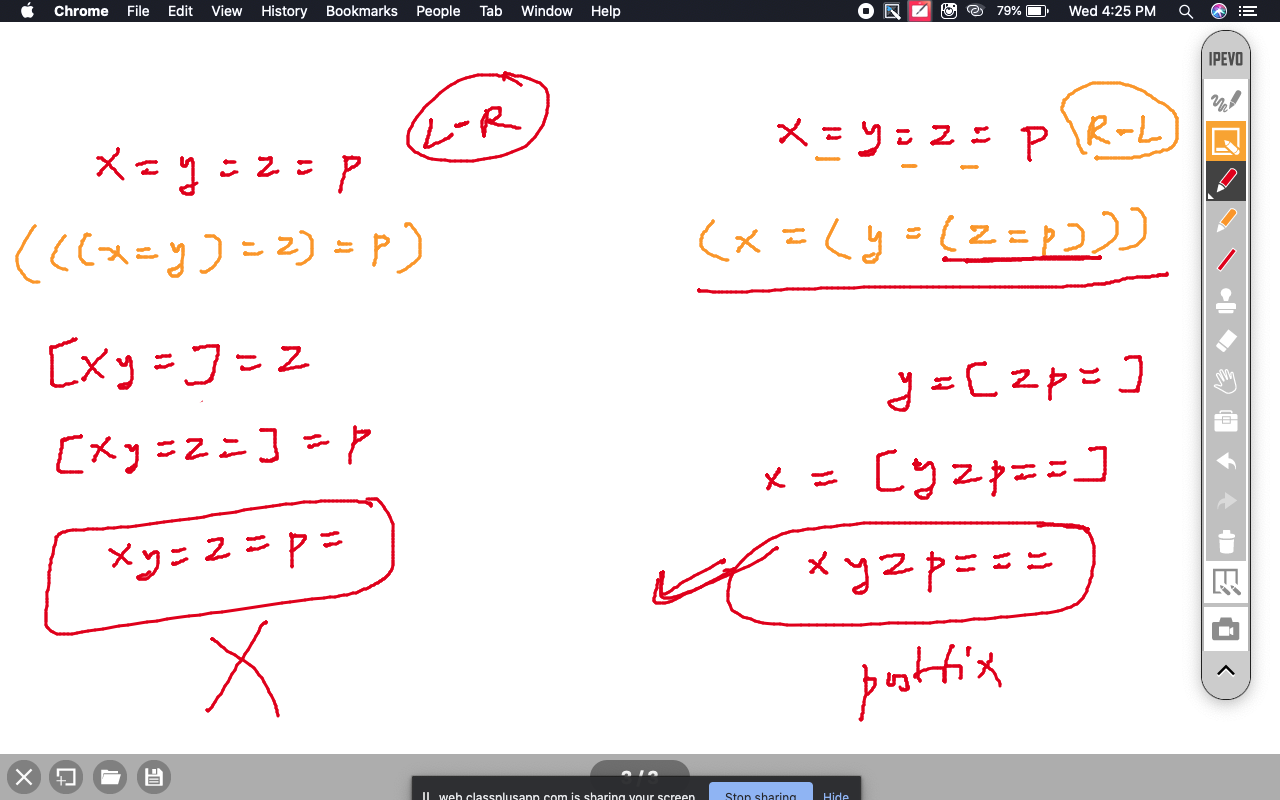 Chrome File Edit View History Bookmarks People Tab Window Help 79% Wed 4:25 PM
IPEVO
L-R
x = y = z = p
(((x=y)=z)=p)
[xy=]=z
[xy=z=]=p
xy=z=p=
X
x = y = z = p
R-L
(x=(y=(z=p)))
y=[zp=]
x=[yzp==]
xyzp===
postfix
web.classplusapp.com is sharing your screen. Stop sharing Hide